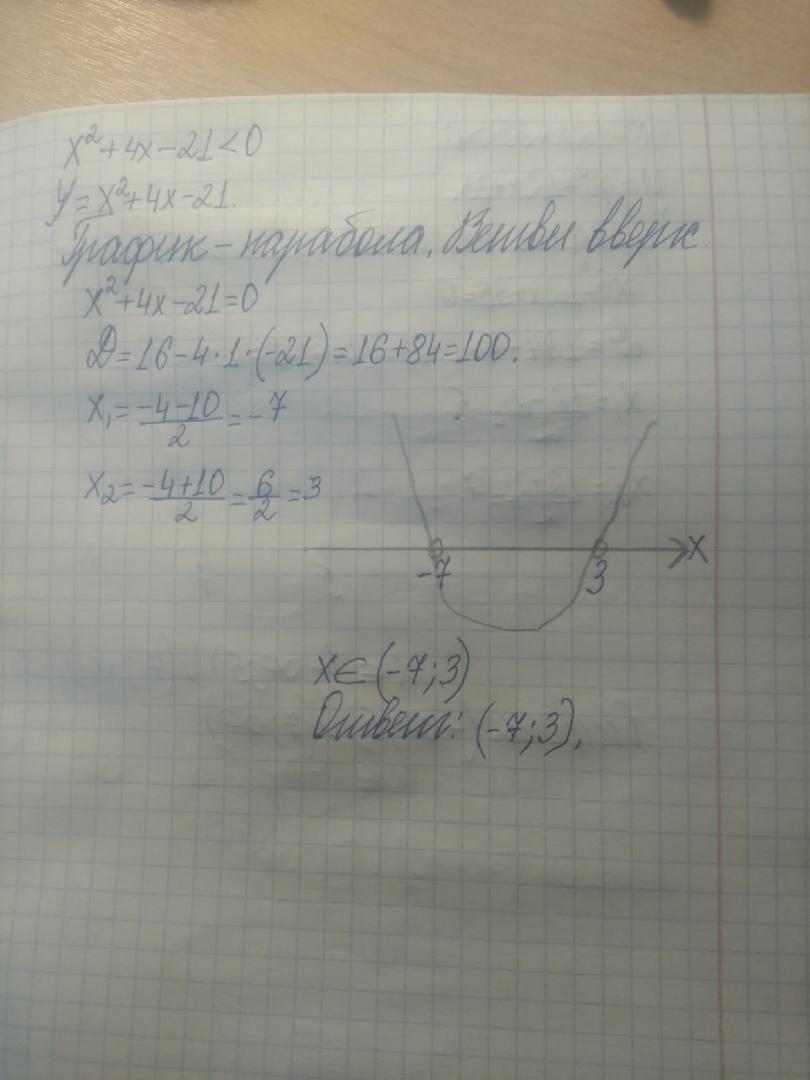 x²+4x-21<0
y=x²+4x-21.
График - парабола. Ветви вверх
x²+4x-21=0
D=16-4·1·(-21)=16+84=100.
x₁=\frac{-4-10}{2}=-7
x₂=\frac{-4+10}{2}=\frac{6}{2}=3
x
-7 3
x∈(-7;3)
Ответ: (-7;3).